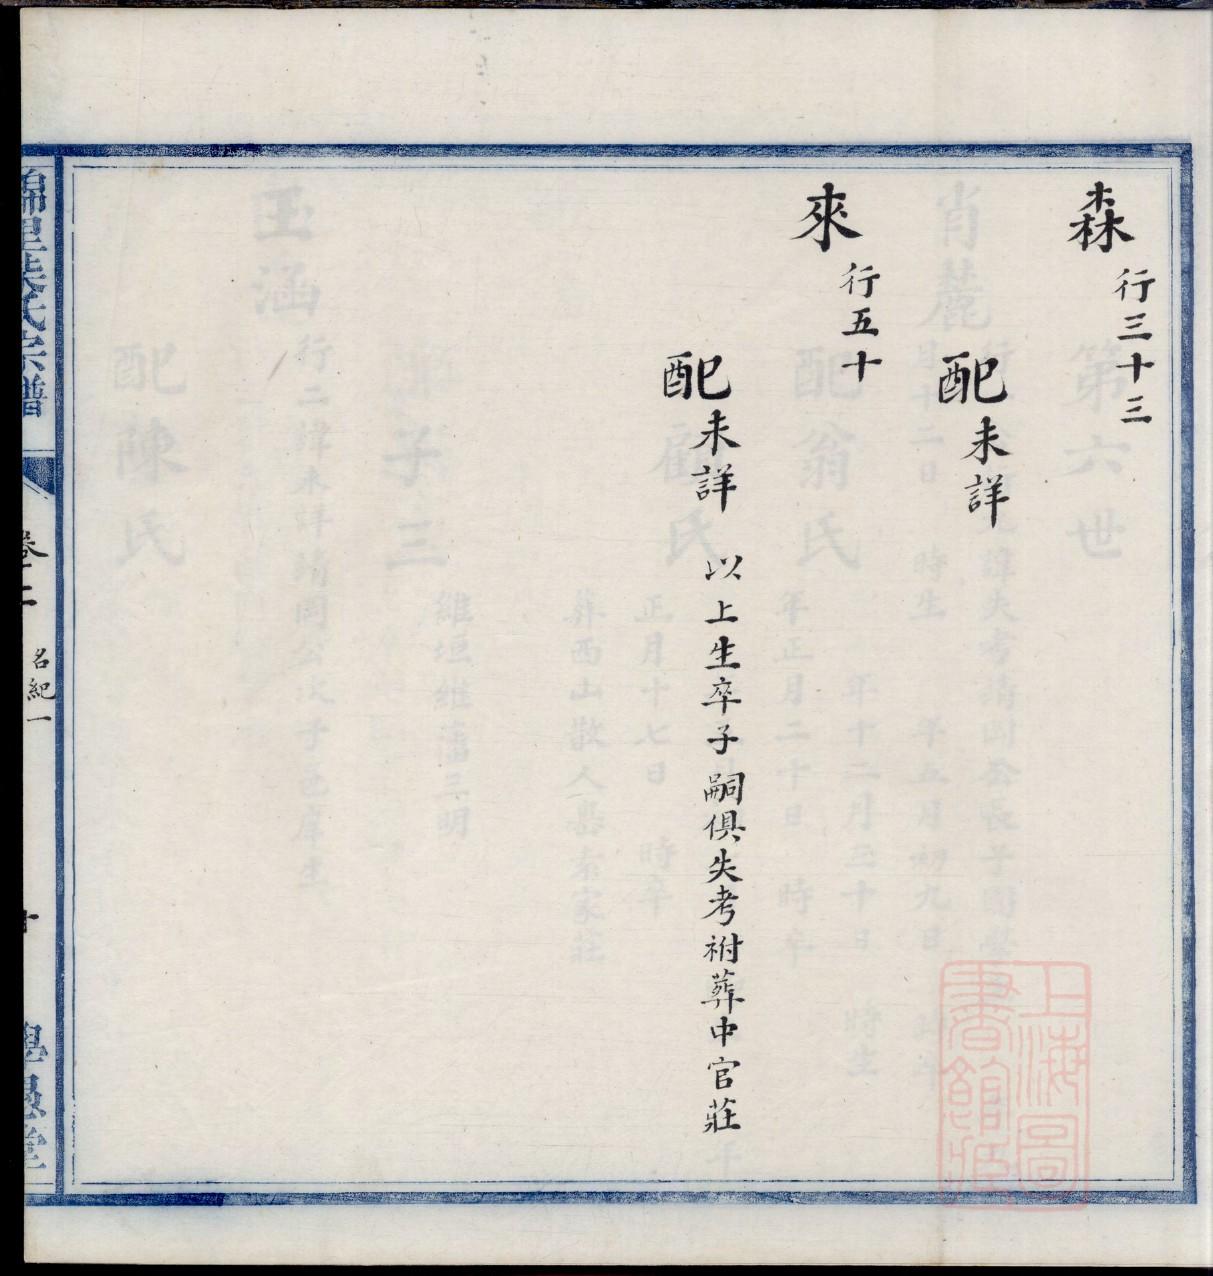 森 行三十三
配 未詳
來 行五十
配 未詳 以上生卒子嗣俱失考祔葬中官莊
氏宗譜
卷二 名紀一
上海圖書館藏